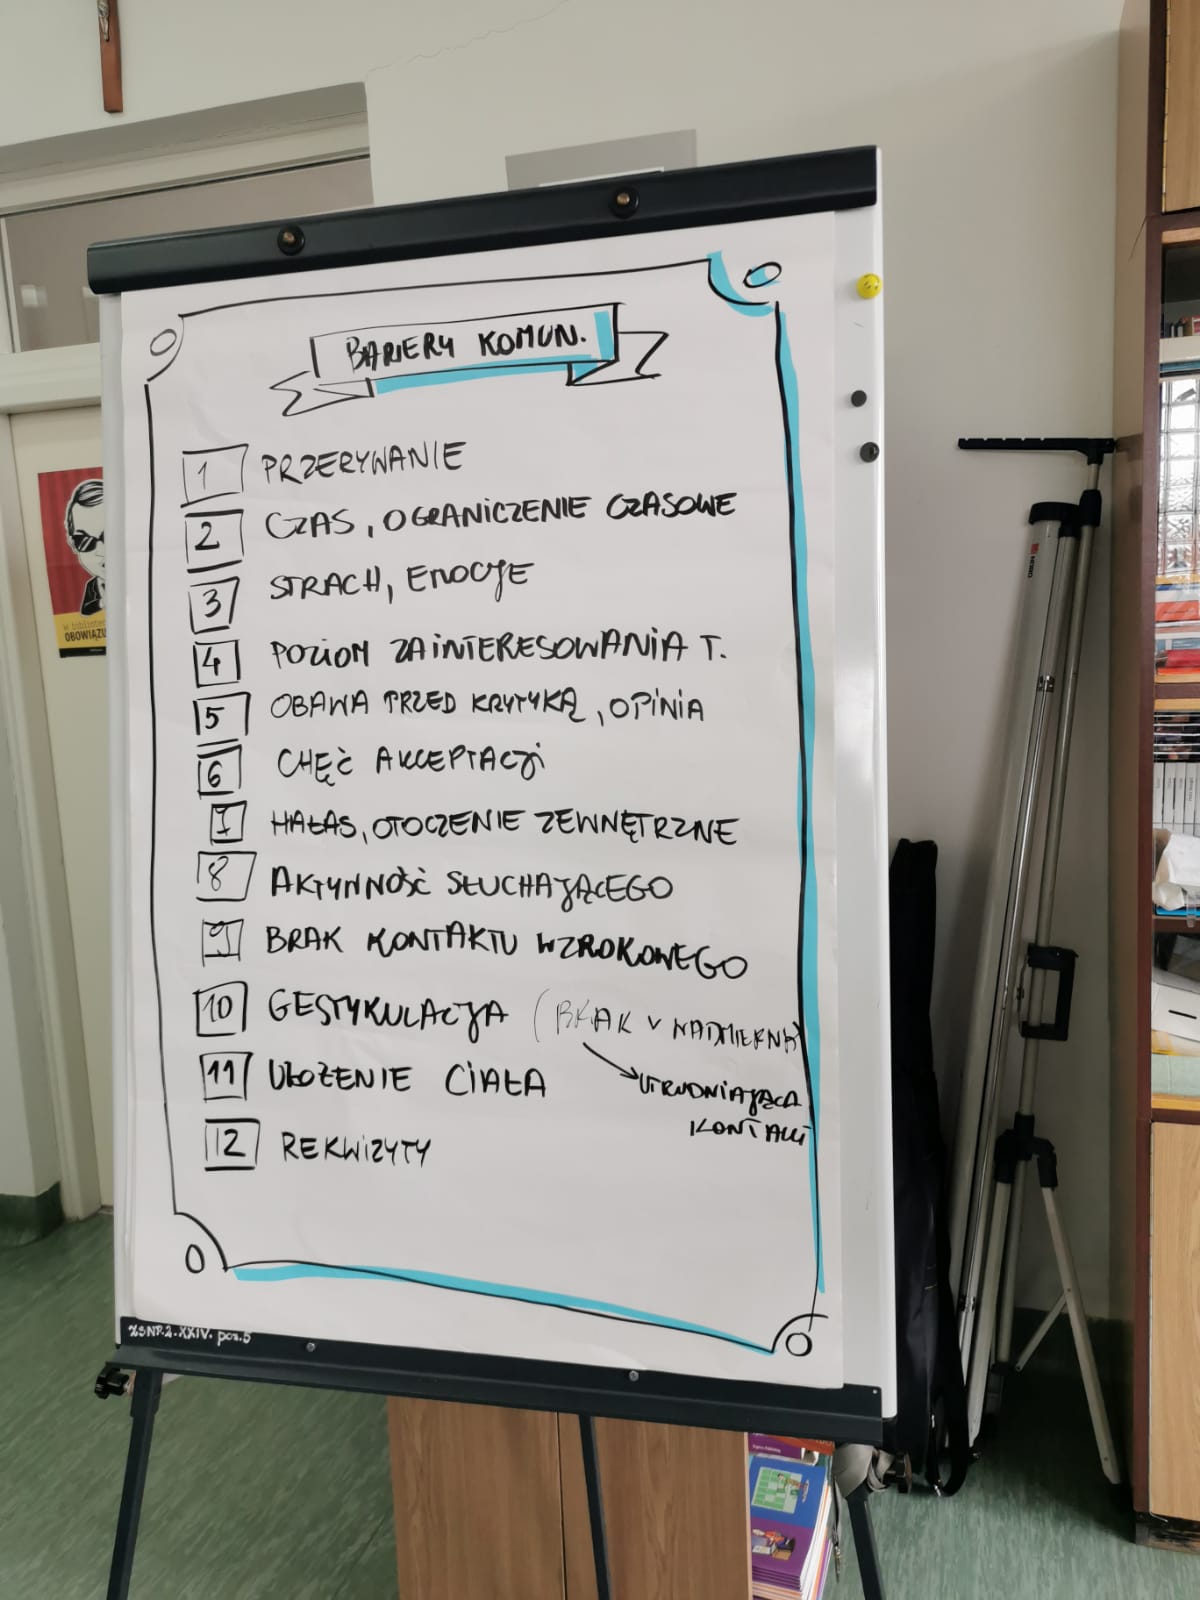 BARIERY KOMUN.
1 PRZERYWANIE
2 CZAS, OGRANICZENIE CZASOWE
3 STRACH, EMOCJE
4 POZIOM ZAINTERESOWANIA T.
5 OBAWA PRZED KRYTYKĄ, OPINIA
6 CHĘĆ AKCEPTACJI
7 HAŁAS, OTOCZENIE ZEWNĘTRZNE
8 AKTYWNOŚĆ SŁUCHAJĄCEGO
9 BRAK KONTAKTU WZROKOWEGO
10 GESTYKULACJA (BRAK v NADMIERNA
UTRUDNIAJĄCA
KONTAKT
11 UŁOŻENIE CIAŁA
12 REKWIZYTY
ZSNP.2.XXIV. poz.5
OBOWIĄZU